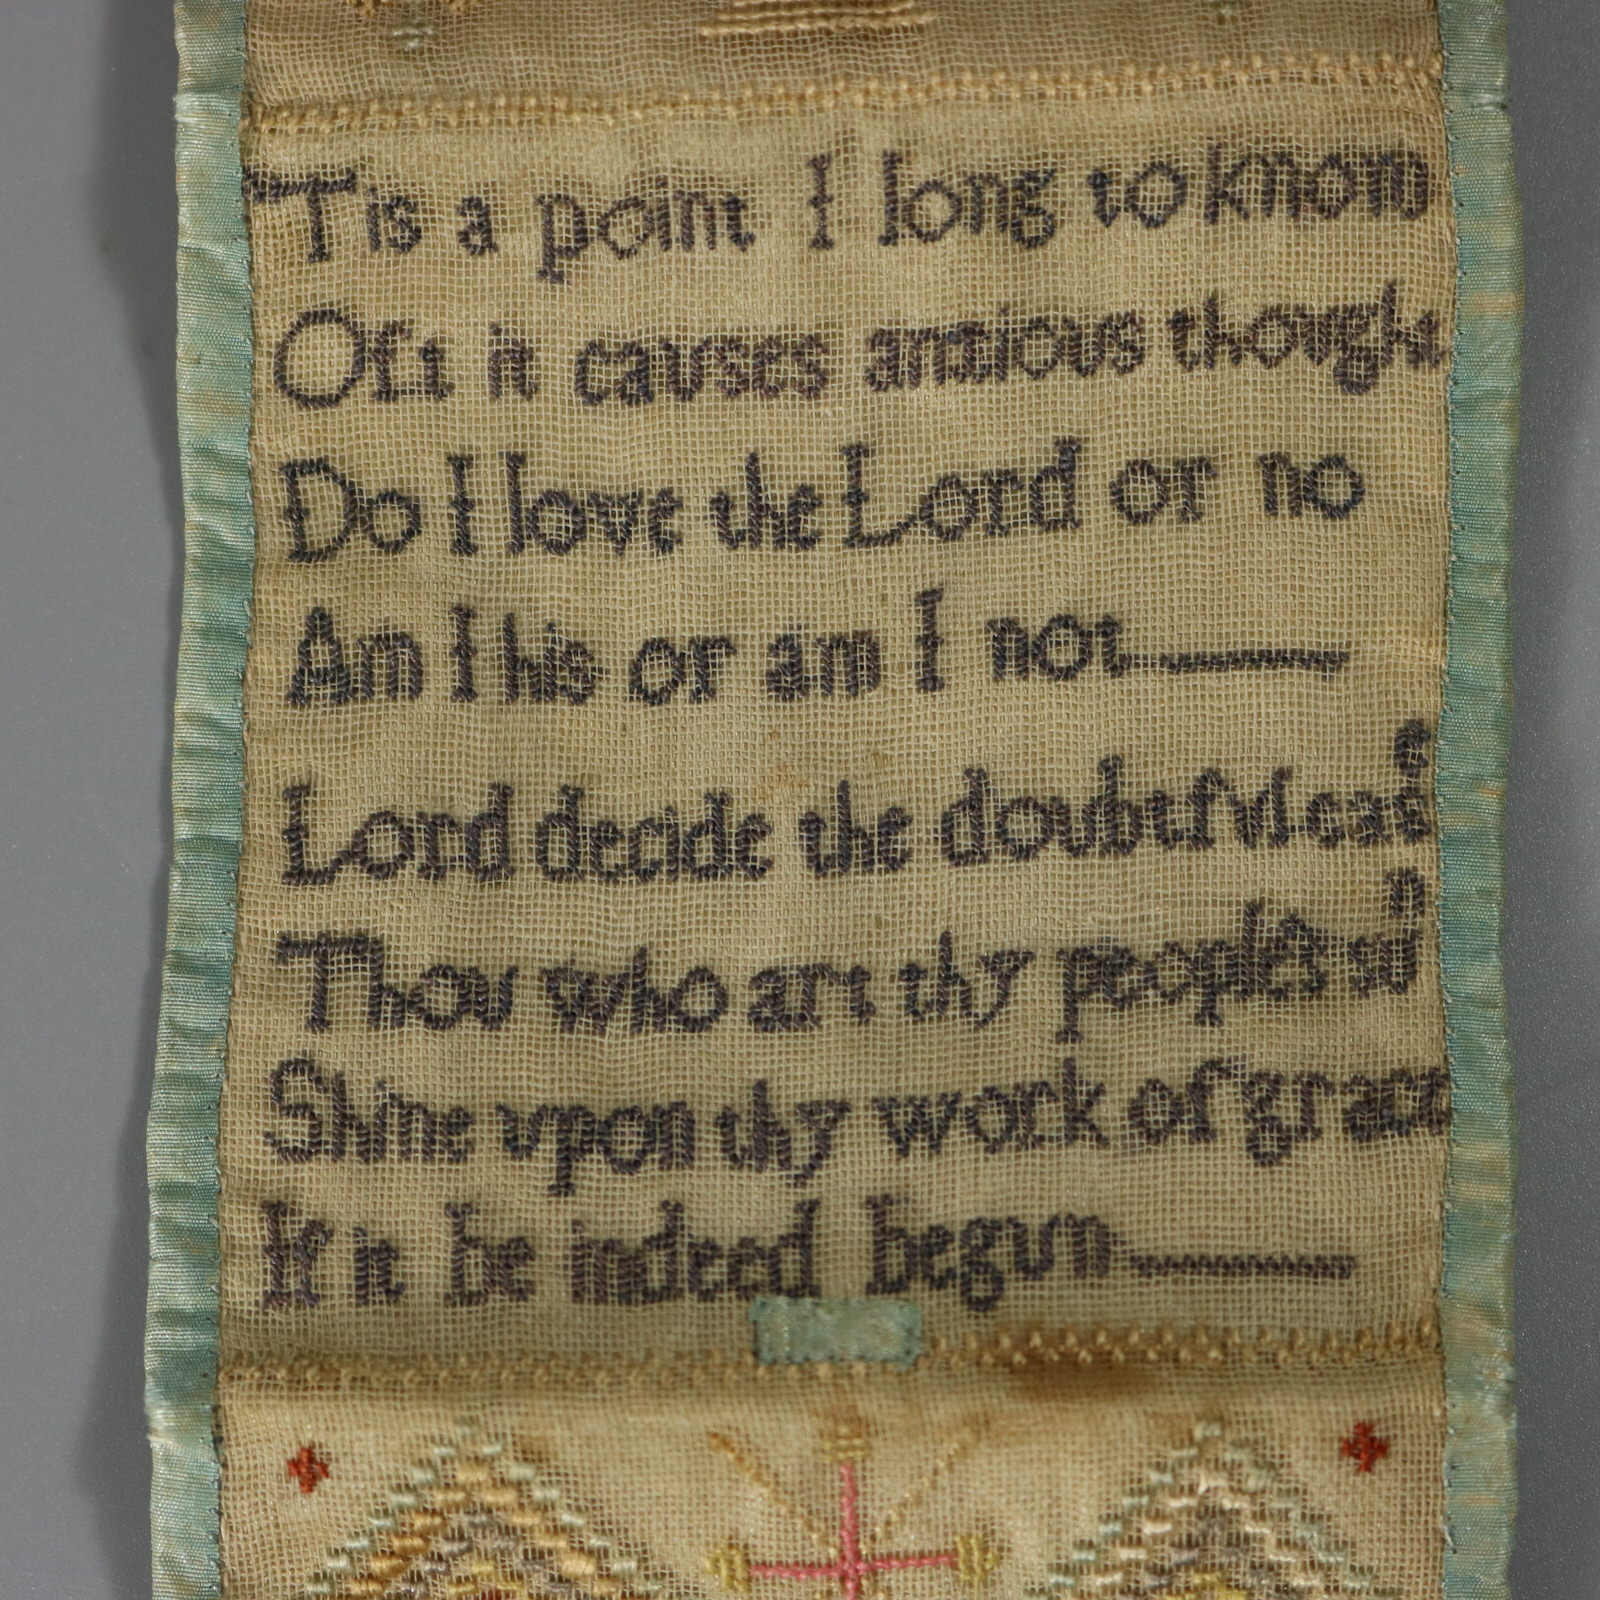 Tis a point I long to know
Oft it causes anxious thought
Do I love the Lord or no
Am I his or am I not
Lord decide the doubtful case
Thou who art thy people's sun
Shine upon thy work of grace
If it be indeed begun